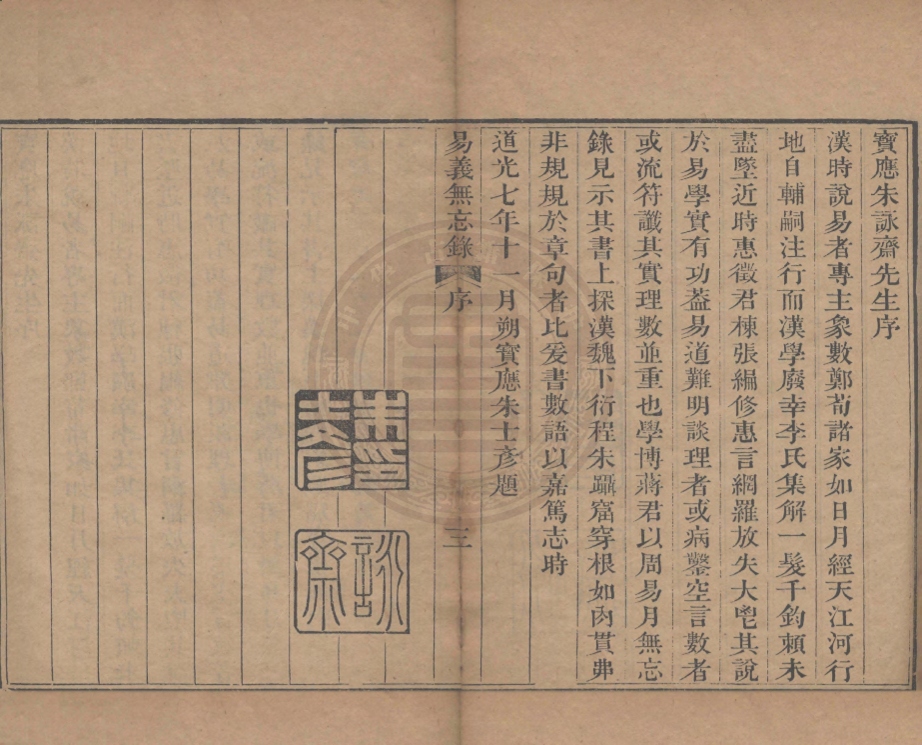 寶應朱詠齋先生序
漢時說易者專主象數鄭荀諸家如日月經天江河行
地自輔嗣注行而漢學廢幸李氏集解一髮千鈞賴未
盡墜近時惠徵君棟張編修惠言網羅放失大鬯其說
於易學實有功葢易道難明談理者或病鑿空言數者
或流符讖其實理數並重也學博蔣君以周易月無忘
錄見示其書上探漢魏下衍程朱躡窟穿根如肉貫弗
非規規於章句者比爰書數語以嘉篤志時
道光七年十一月朔寶應朱士彥題
易義無忘錄 序 三
朱士彥
詠齋